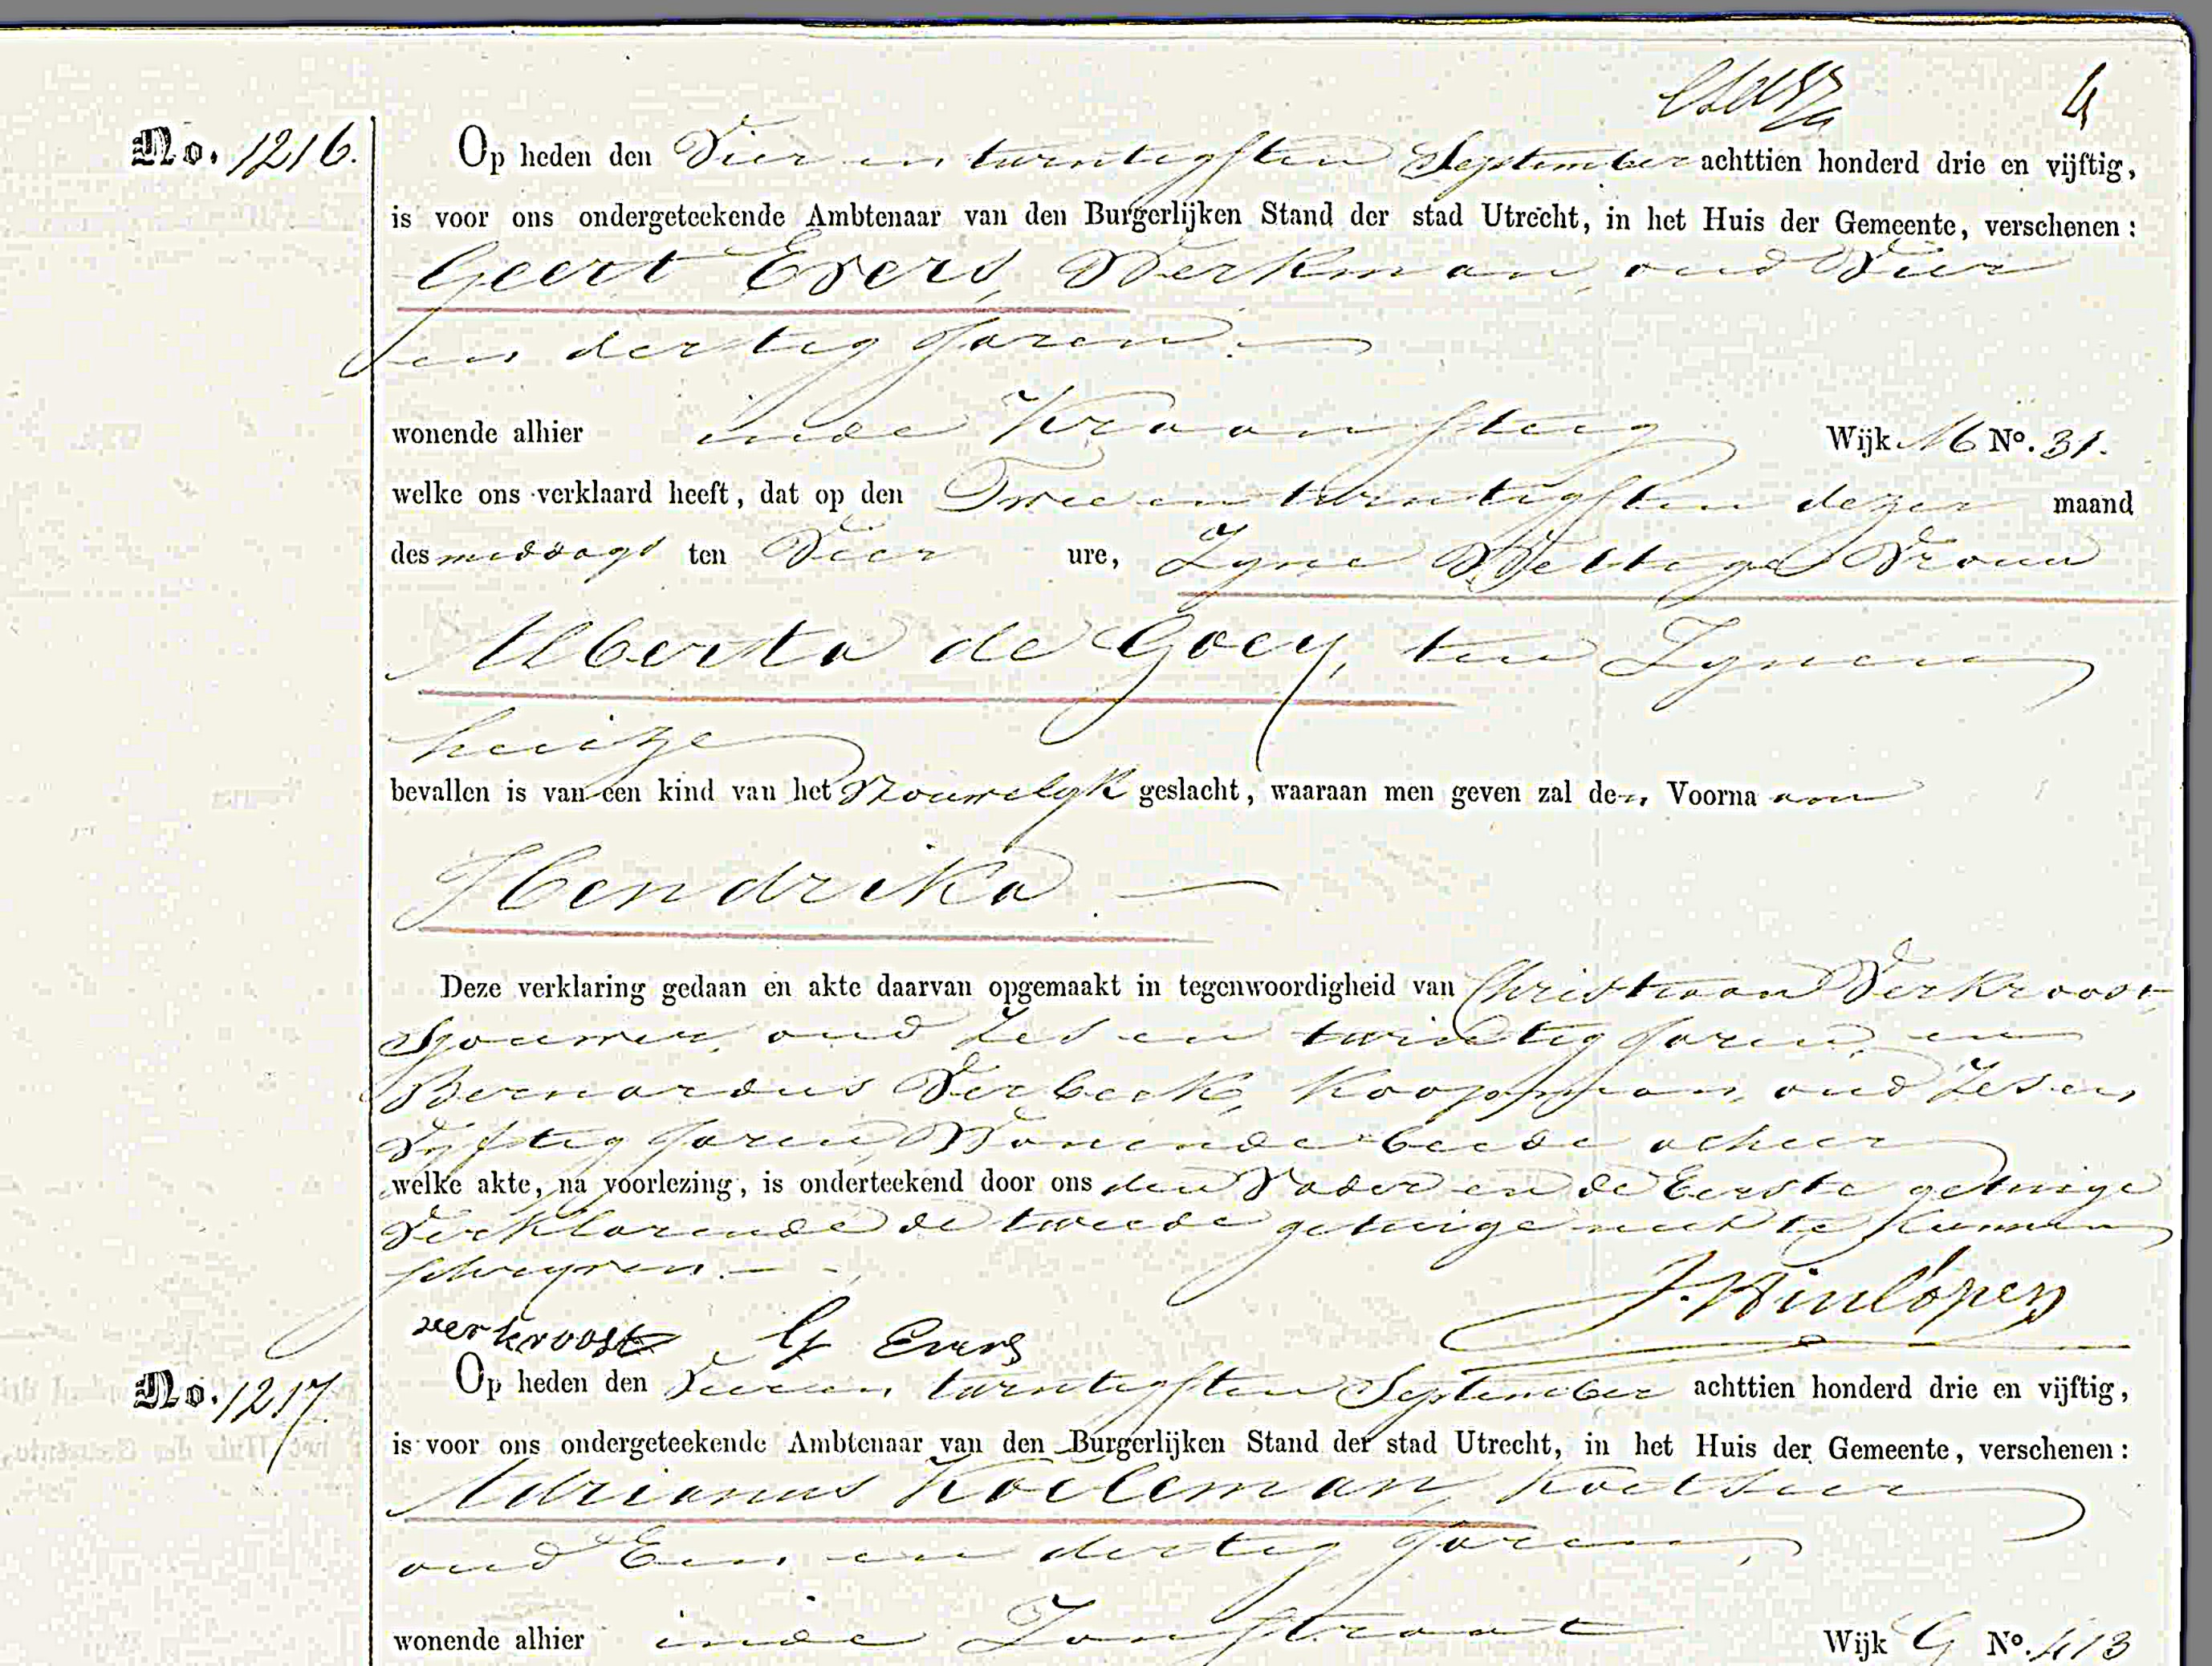 4
No. 1216. Op heden den Vier en twintigsten September achttien honderd drie en vijftig,
is voor ons ondergeteekende Ambtenaar van den Burgerlijken Stand der stad Utrecht, in het Huis der Gemeente, verschenen:
Geert Evers, Werkman, oud Vier
en dertig Jaren
wonende alhier inde Kraansteeg Wijk M No. 31.
welke ons verklaard heeft, dat op den Twee en twintigsten dezer maand
des middags ten Vier ure, Zyne Wettige Vrouw
Alberta de Goey, ten Zynen
huize
bevallen is van een kind van het Vrouwelyk geslacht, waaraan men geven zal den Voornaam
Hendrika
Deze verklaring gedaan en akte daarvan opgemaakt in tegenwoordigheid van Christiaan Verkroost
Sjouwer, oud Zes en twintig Jaren, en
Bernardus Verbeek, Koopman, oud Zes en
Vyftig Jaren, Wonende beide alhier
welke akte, na voorlezing, is onderteekend door ons den Vader en de Eerste getuige
Verklarende de tweede getuige niet te kunnen
schryven.
verkroost G Evers J. Hinlópen
No. 1217. Op heden den Vier en twintigsten September achttien honderd drie en vijftig,
is voor ons ondergeteekende Ambtenaar van den Burgerlijken Stand der stad Utrecht, in het Huis der Gemeente, verschenen:
Adrianus Koeleman, Koetsier
oud Een en dertig Jaren,
wonende alhier inde Janstraat Wijk G No. 413